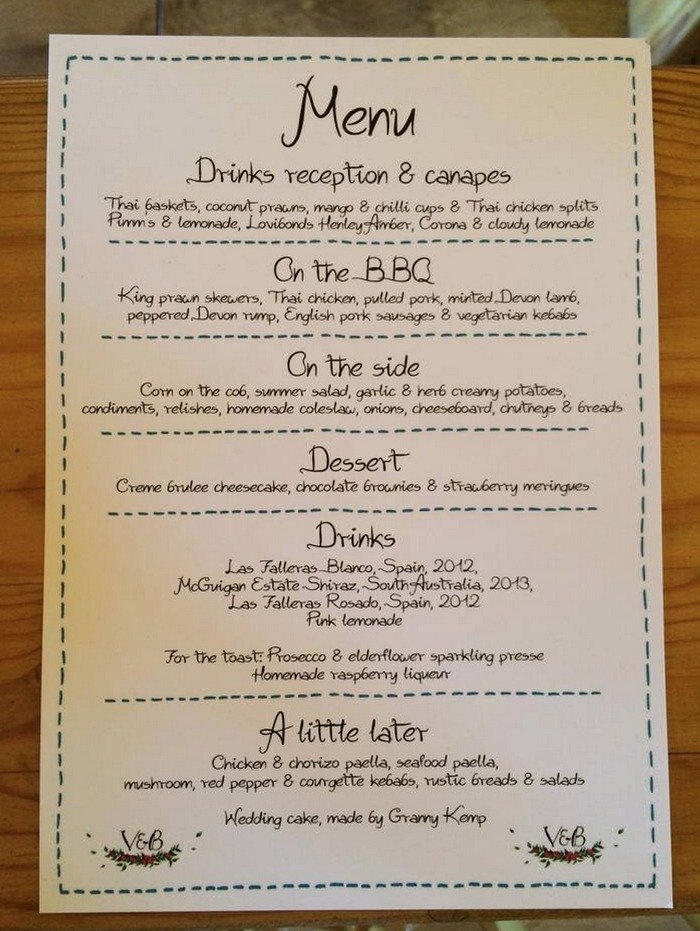 Menu
Drinks reception & canapes
Thai baskets, coconut prawns, mango & chilli cups & Thai chicken splits
Pimm's & lemonade, Lovibonds Henley Amber, Corona & cloudy lemonade
On the BBQ
King prawn skewers, Thai chicken, pulled pork, minted Devon lamb,
peppered Devon rump, English pork sausages & vegetarian kebabs
On the side
Corn on the cob, summer salad, garlic & herb creamy potatoes,
condiments, relishes, homemade coleslaw, onions, cheeseboard, chutneys & breads
Dessert
Creme brulee cheesecake, chocolate brownies & strawberry meringues
Drinks
Las Falleras Blanco, Spain, 2012,
McGuigan Estate Shiraz, South Australia, 2013,
Las Falleras Rosado, Spain, 2012
Pink lemonade
For the toast: Prosecco & elderflower sparkling presse
Homemade raspberry liqueur
A little later
Chicken & chorizo paella, seafood paella,
mushroom, red pepper & courgette kebabs, rustic breads & salads
Wedding cake, made by Granny Kemp
V&B
V&B